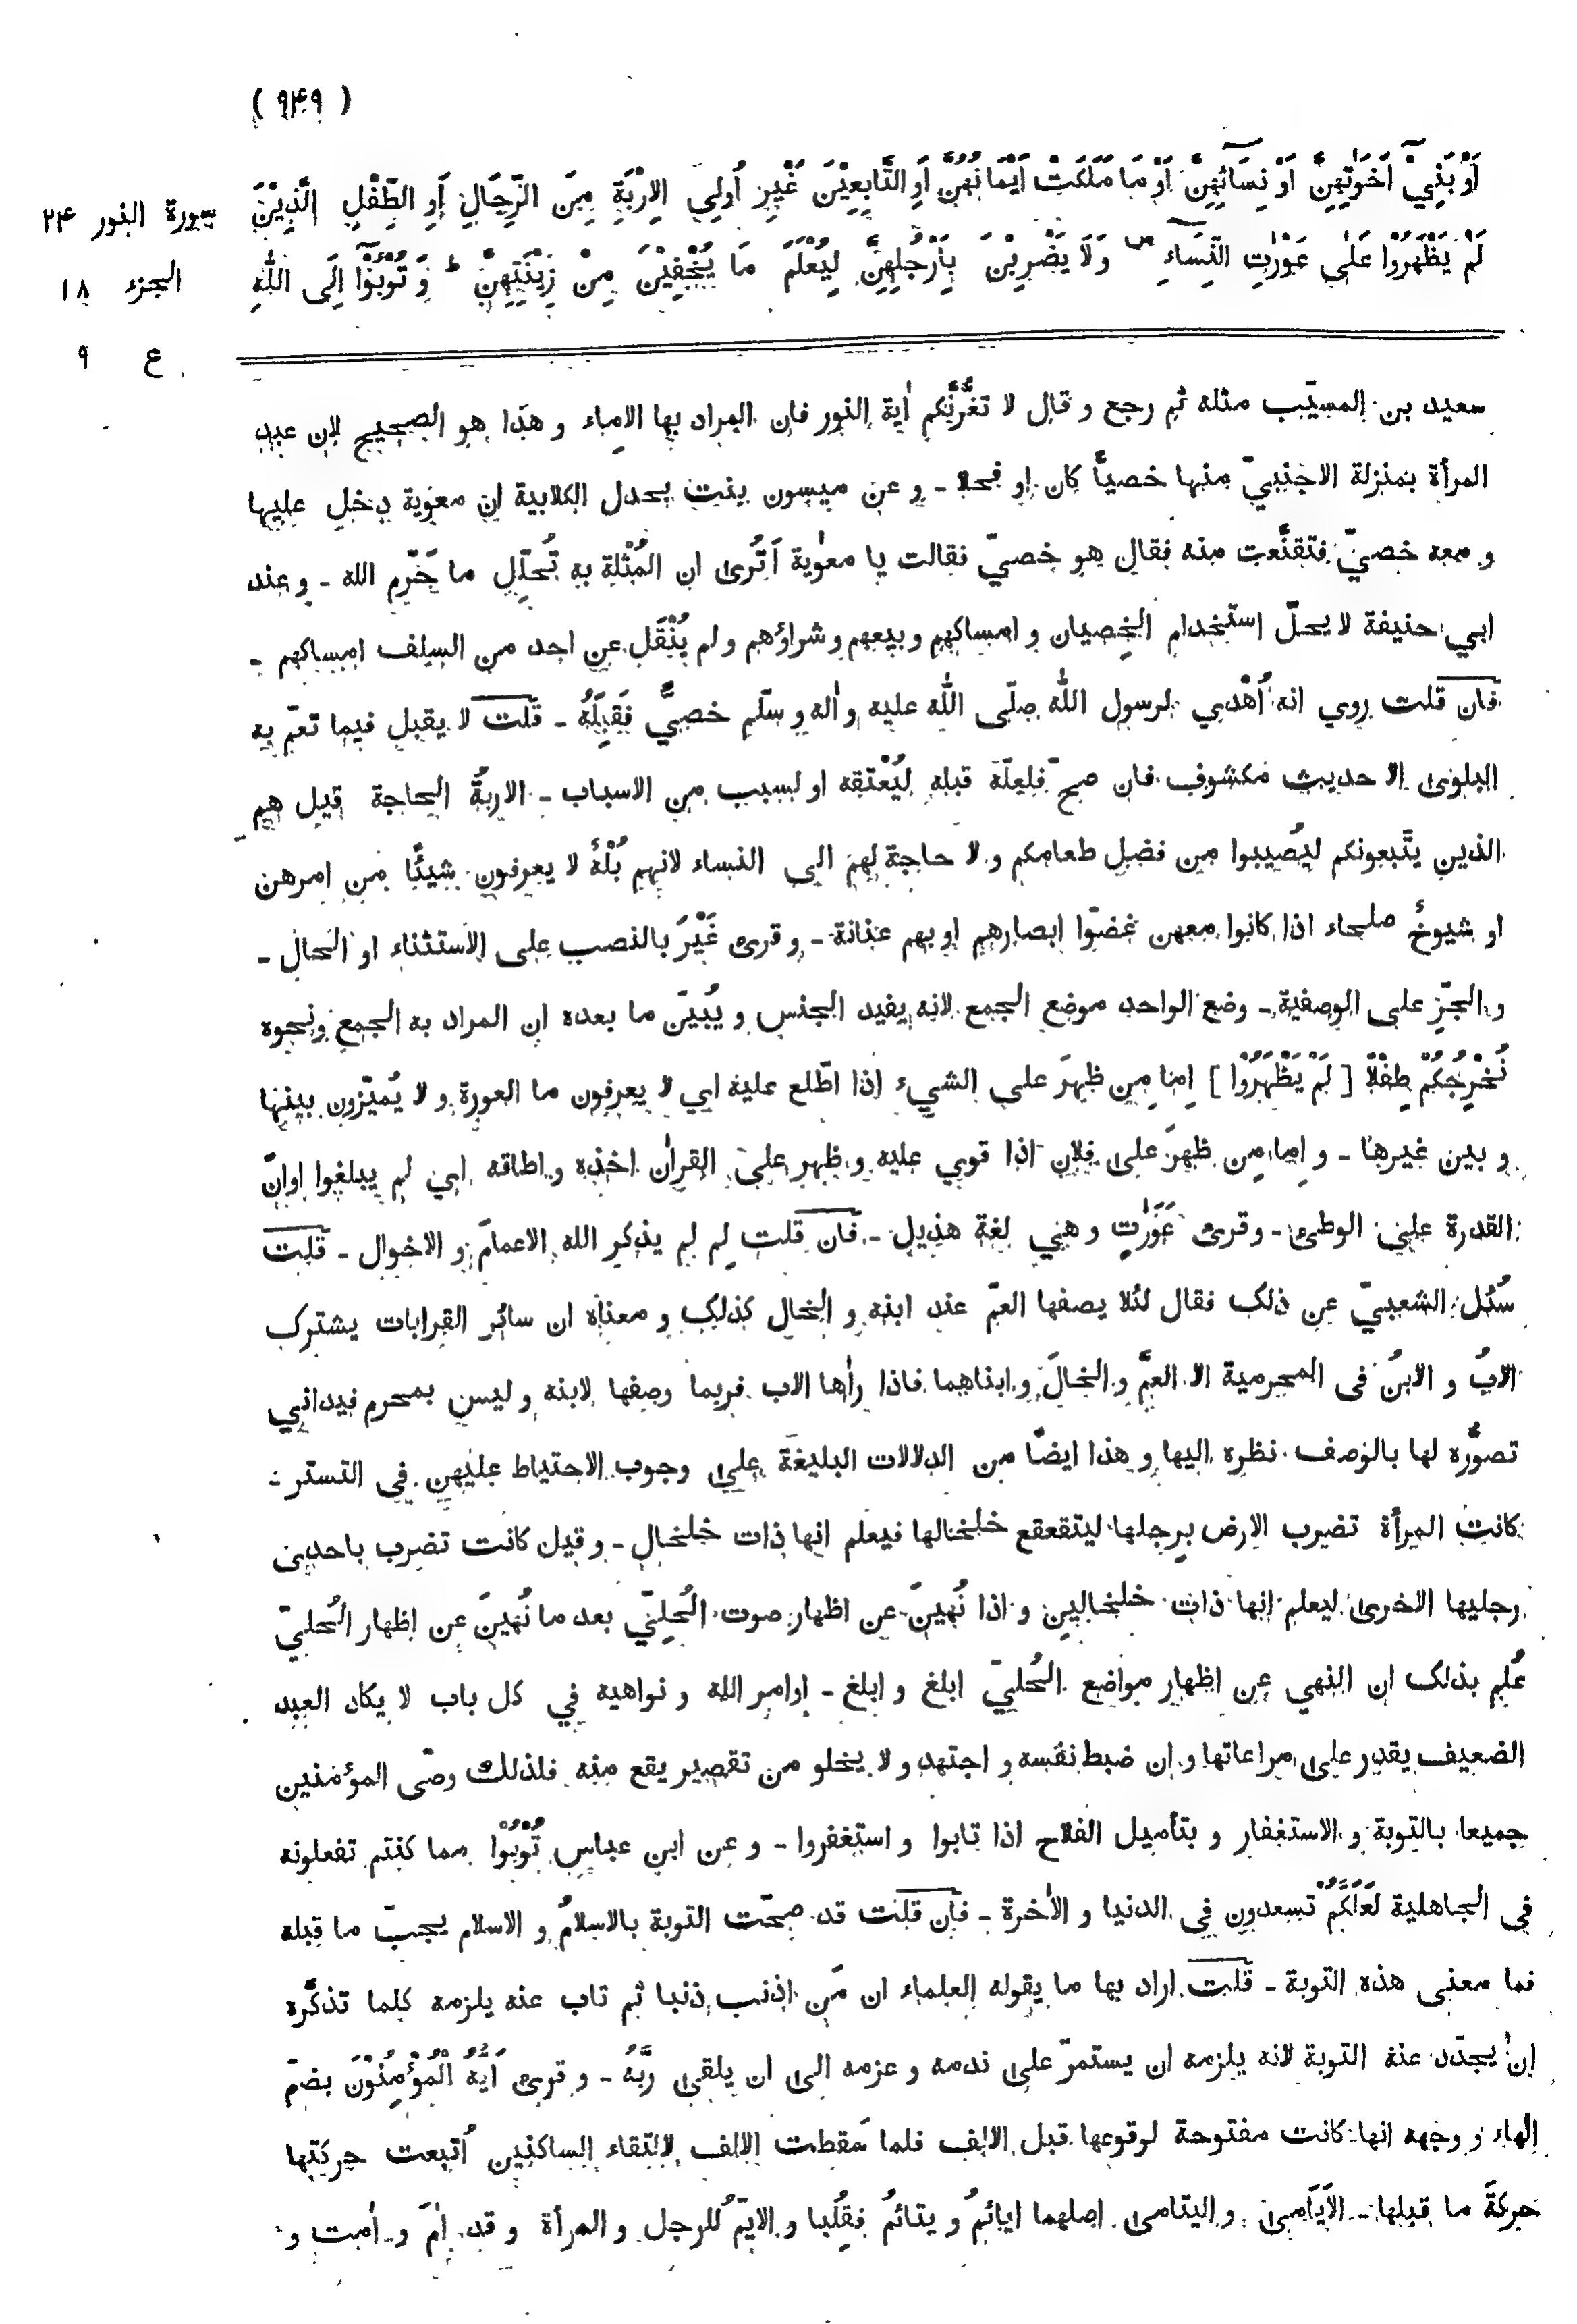 ( ٩٤٩ )
أَوْ بَنِيْٓ أَخَوٰتِهِنَّ أَوْ نِسَآئِهِنَّ أَوْ مَا مَلَكَتْ أَيْمَانُهُنَّ أَوِ التَّابِعِيْنَ غَيْرِ أُولِي الْاِرْبَةِ مِنَ الرِّجَالِ أَوِ الطِّفْلِ الَّذِيْنَ
سورة النور ٢٤
لَمْ يَظْهَرُوْا عَلٰى عَوْرٰتِ النِّسَآءِ ص وَلَا يَضْرِبْنَ بِأَرْجُلِهِنَّ لِيُعْلَمَ مَا يُخْفِيْنَ مِنْ زِيْنَتِهِنَّ ط وَ تُوْبُوْٓا إِلَى اللّٰهِ
الجزء ١٨
ع ٩
سعيد بن المسيّب مثله ثم رجع و قال لا تغُرَّنَّكم اٰية النور فان المراد بها الاماء و هذا هو الصحيح لان عبد
المرأة بمنزلة الاجنبيّ منها خصيًّا كان او فحلا - و عن ميسون بنت بحدل الكلابية ان معٰوية دخل عليها
و معه خصيّ فتقنَّعت منه فقال هو خصيّ فقالت يا معٰوية أتُرى ان المُثْلة به تُحلّل ما حَرّم الله - و عند
ابي حنيفة لا يحلّ استخدام الخِصيان و امساكهم و بيعهم و شراؤهم و لم يُنْقَل عن احد من السلف امساكهم -
فان قلت روي انه اُهْدي لرسول اللّٰه صلّى اللّٰه عليه و اٰله و سلّم خصيٌّ فَقَبِلَهُ - قلت لا يقبل فيما تعمّ به
البلوى الا حديث مكشوف فان صحّ فلعلّه قبله ليُعْتقه او لسبب من الاسباب - الاربةُ الحاجة قيل هم
الذين يتَّبعونكم ليُصيبوا من فضل طعامكم و لا حاجة لهم الى النساء لانهم بُلْهٌ لا يعرفون شيئًا من امرهن
او شيوخٌ صلحاء اذا كانوا معهن غضّوا ابصارهم او بهم عنانة - و قرئ غَيْرَ بالنصب على الاستثناء او الحال -
و الجرِّ على الوصفية - وضع الواحد موضع الجمع لانه يفيد الجنس و يُبيّن ما بعده ان المراد به الجمع و نحوه
نُخْرِجُكُمْ طِفْلًا [ لَمْ يَظْهَرُوْا ] اِما مِن ظهرَ على الشيء اذا اطّلع عليه اي لا يعرفون ما العورة و لا يُميّزون بينها
و بين غيرها - و اِما مِن ظهرَ على فلان اذا قوي عليه و ظهر على القراٰن اخذه و اطاقه اي لم يبلغوا اوانَ
القدرة على الوطئ - و قرئ عَوَرٰت و هي لغة هذيل - فان قلت لِم لم يذكر الله الاعمامَ و الاخوال - قلت
سُئل الشعبيّ عن ذلك فقال لئلا يصفها العمّ عند ابنه و الخال كذلك و معناه ان سائر القرابات يشترك
الابُ و الابنُ فى المحرمية الا العمَّ و الخالَ و ابناهما فاذا رأٰها الاب فربما وصفها لابنه و ليس بمحرم فيداني
تصوُّره لها بالوصف نظره اليها و هذا ايضًا من الدلالات البليغة على وجوب الاحتياط عليهن فى التستر -
كانت المرأة تضرب الارض برجلها ليتقعقع خلخالها فيعلم انها ذات خلخال - و قيل كانت تضرب باحدى
رجليها الاخرى ليعلم انها ذات خلخالين و اذا نُهينَ عن اظهار صوت الحُلِيّ بعد ما نُهينَ عن اظهار الحُليّ
عُلم بذلك ان النهي عن اظهار مواضع الحُليّ ابلغ و ابلغ - اوامر الله و نواهيه في كل باب لا يكاد العبد
الضعيف يقدر على مراعاتها و ان ضبط نفسه و اجتهد و لا يخلو من تقصير يقع منه فلذلك وصّى المؤمنين
جميعا بالتوبة و الاستغفار و بتأميل الفلاح اذا تابوا و استغفروا - و عن ابن عباس تُوْبُوْا مما كنتم تفعلونه
فى الجاهلية لَعَلَّكُمْ تسعدون فى الدنيا و الاٰخرة - فان قلت قد صحّت التوبة بالاسلام و الاسلام يجبّ ما قبله
فما معنى هذه التوبة - قلت اراد بها ما يقوله العلماء ان مَن اذنب ذنبا ثم تاب عنه يلزمه كلما تذكّره
ان يجدّد عنه التوبة لانه يلزمه ان يستمرّ على ندمه و عزمه الى ان يلقى ربَّهُ - و قرئ اَيُّهُ الْمُؤْمِنُوْنَ بضمّ
الهاء و وجهه انها كانت مفتوحة لوقوعها قبل الالف فلما سَقطت الالف لالتقاء الساكنين اُتبعت حركتها
حركةَ ما قبلها - الْاَيَامى و اليتامى اصلهما ايائمُ و يتائمُ فقُلبا و الايّم للرجل و المرأة و قد اٰمَ و اٰمت و